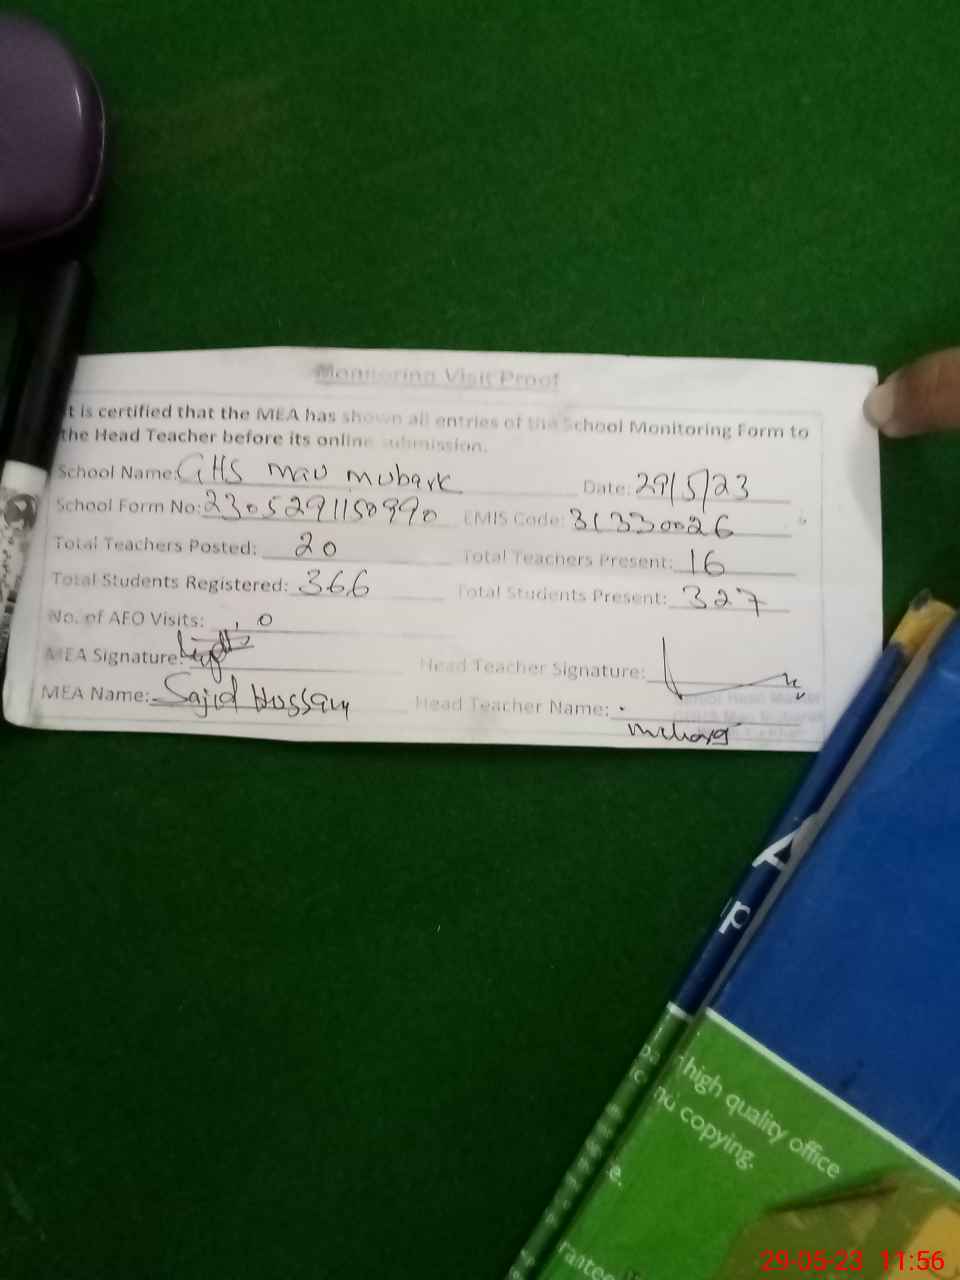 Monitoring Visit Proof
It is certified that the MEA has shown all entries of the School Monitoring Form to
the Head Teacher before its online submission.
School Name: GHS mau mubark Date: 29/5/23
School Form No: 2305291150990 EMIS Code: 31330026
Total Teachers Posted: 20 Total Teachers Present: 16
Total Students Registered: 366 Total Students Present: 327
No. of AEO Visits: 0
MEA Signature: Head Teacher Signature:
MEA Name: Sajid Hussain Head Teacher Name:
high quality office
nd copying.
e.
29-05-23 11:56